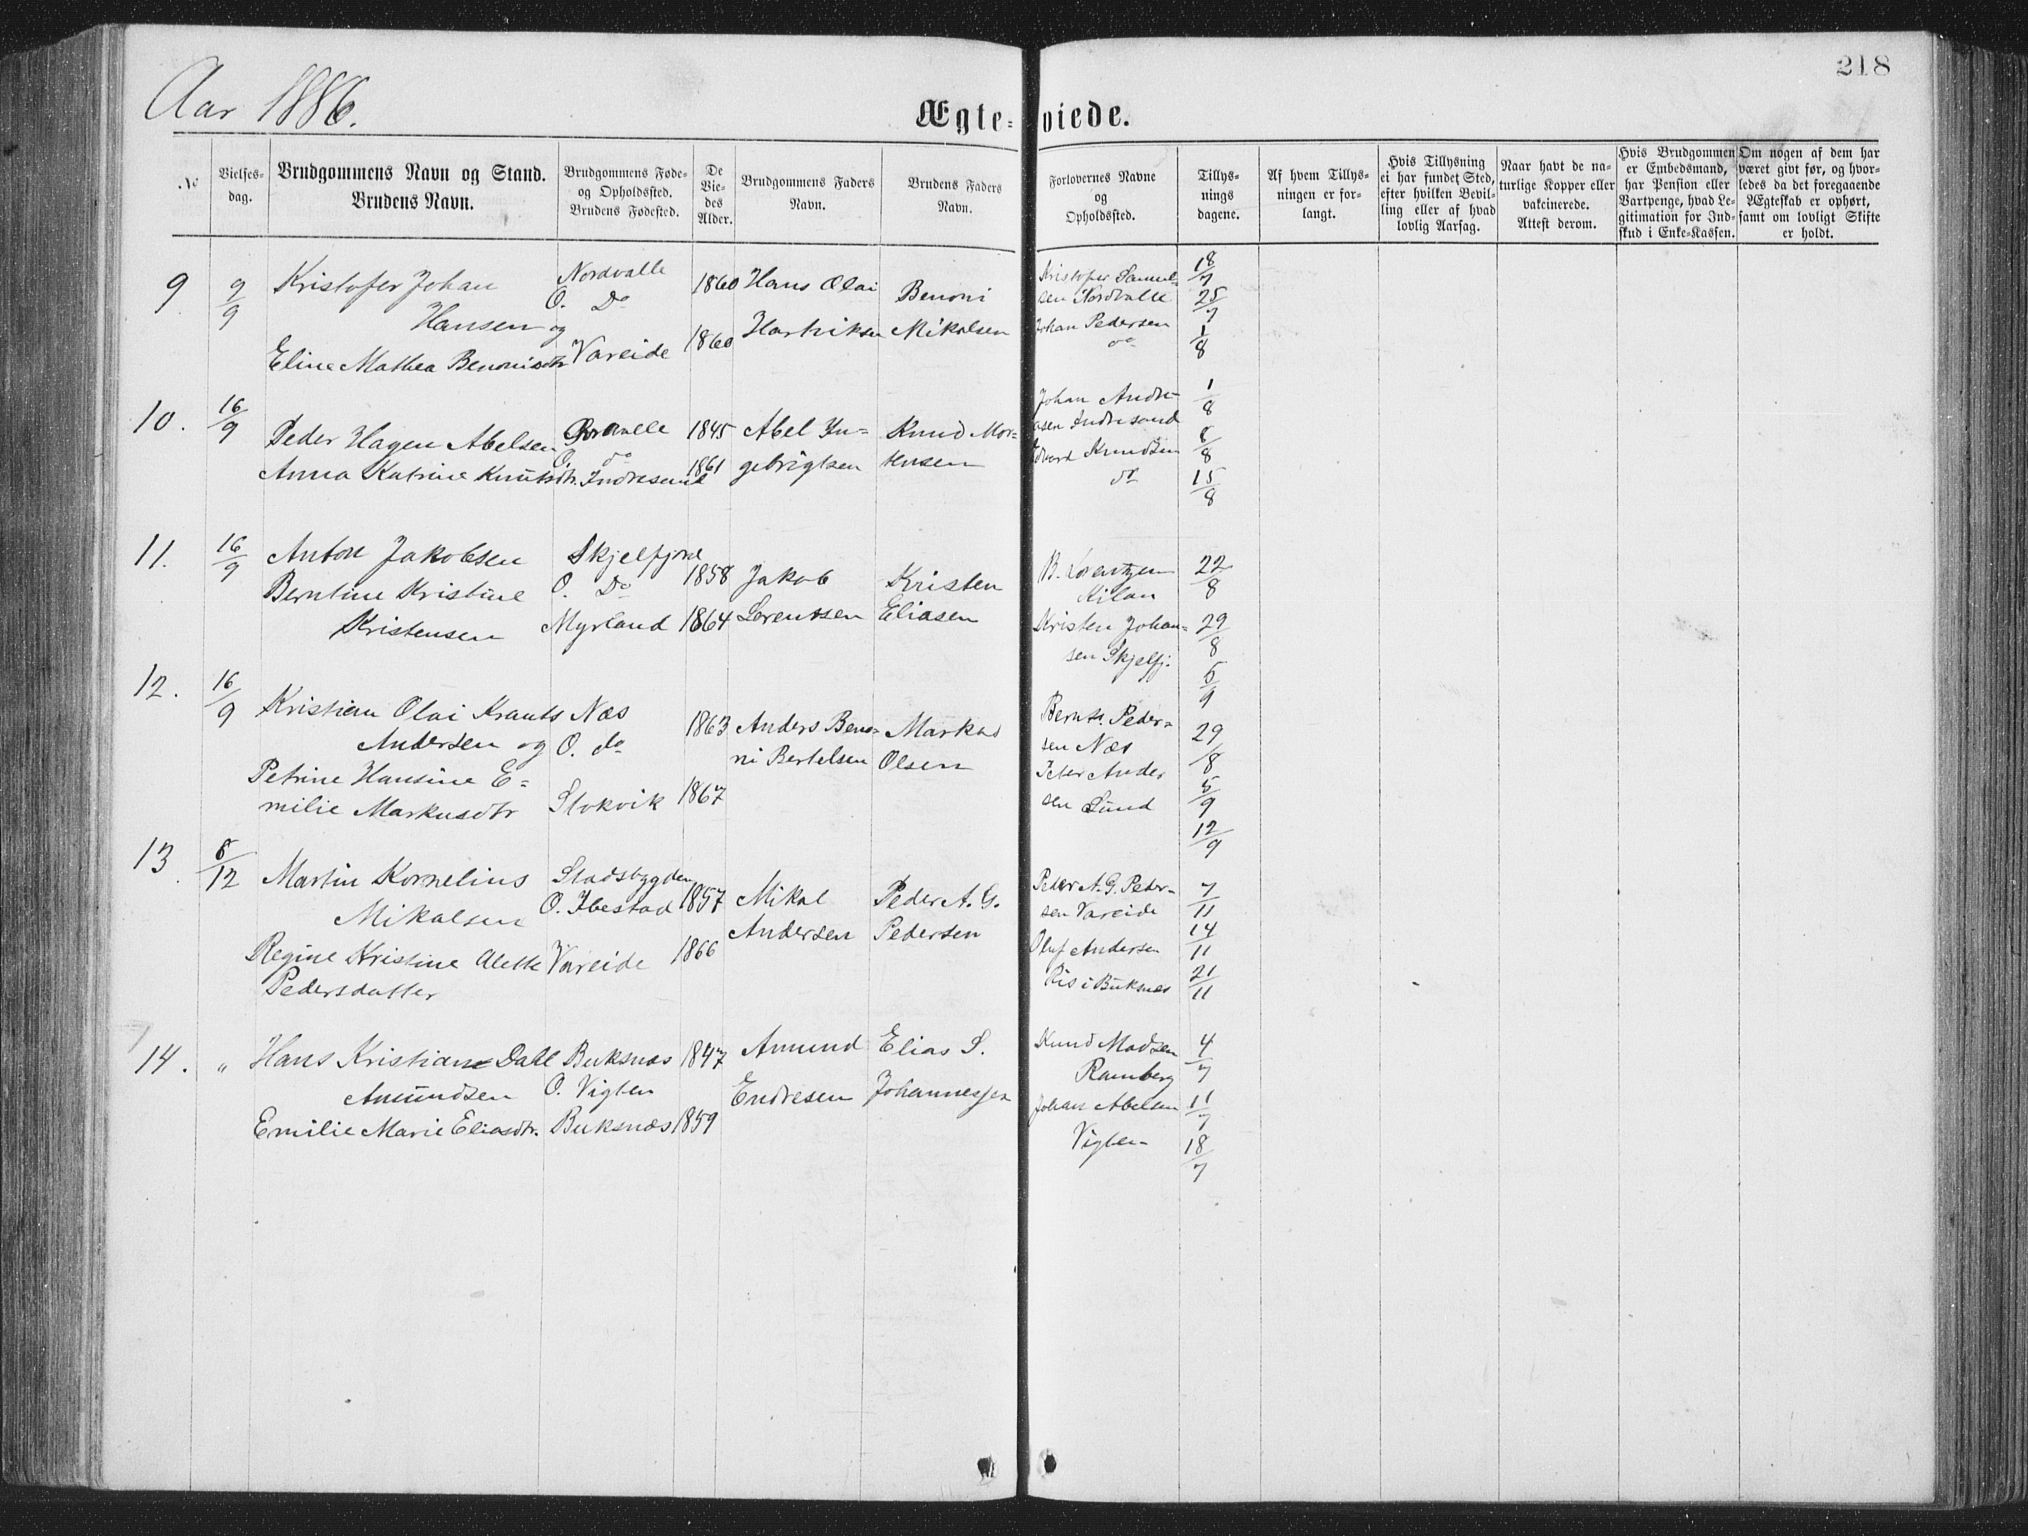 218
Aar 1886.
Ægte-viede.
No
Vielses-dag.
Brudgommens Navn og Stand.
Brudens Navn.
Brudgommens Føde-
og Opholdssted.
Brudens Fødested.
De
Vie-
des
Alder.
Brudgommens Faders
Navn.
Brudens Faders
Navn.
Forlovernes Navne
og
Opholdssted.
Tillys-
nings
dagene.
Af hvem Tillys-
ningen er for-
langt.
Hvis Tillysning
ei har fundet Sted,
efter hvilken Bevil-
ling eller af hvad
lovlig Aarsag.
Naar havt de na-
turlige Kopper eller
vakcinerede.
Attest derom.
Hvis Brudgommen
er Embedsmand,
har Pension eller
Vartpenge, hvad Le-
gitimation for Ind-
skud i Enke-Kassen.
Om nogen af dem har
været givt før, og hvor-
ledes da det foregaaende
Ægteskab er ophørt,
samt om lovligt Skifte
er holdt.
9 9/9 Kristofer Johan Nordvalle 1860 Hans Olai Benoni Kristofer Samuel- 18/7
Hansen og O. Do Hartviksen Mikalsen sen Nordvalle 25/7
Eline Mathea Benonisdtr Vareide 1860 Johan Pedersen 1/8
do
10. 16/9 Peder Hagen Abelsen 1845 Abel In- Knud Mor- Johan Andre- 1/8
O. do gebrigtsen tensen asen Indresand 8/8
Anna Katrine Knutsdtr. Indresand 1861 Edvard Knudsen do 15/8
11. 16/9 Anton Jakobsen Skjelfjord 1858 Jakob Kristen B. Lorentzen 22/8
Berntine Kristine O. Do Lorentsen Eliasen Kilan
Kristensen Myrland 1864 Kristen Johan- 29/8
sen Skjelfj. 5/9
12. 16/9 Kristian Olai Krants Næs 1863 Anders Beno- Markus Bernt Peder-
Andersen og O. do ni Bertelsen Olsen sen Næs 29/8
Petrine Hansine E- Peter Ander 5/9
milie Markusdtr Stokvik 1867 sen Sund 12/9
13. 8/12 Martin Kornelius Stadsbygden 1857 Mikal Peder A. G. Peder A. G. Peder- 7/11
Mikalsen O. Ibestad Andersen Pedersen sen Vareide
Regine Kristine Alette Vareide 1866 Oluf Andersen 14/11
Pedersdatter Ris i Buksnæs 21/11
14. " Hans Kristian Dahl Buksnæs 1847 Amund Elias S. Knud Madsen 4/7
Amundsen O. Vigten Endresen Johannessen Ramberg
Emilie Marie Eliasdtr. Buksnæs 1859 Johan Abelsen 11/7
Vigten 18/7